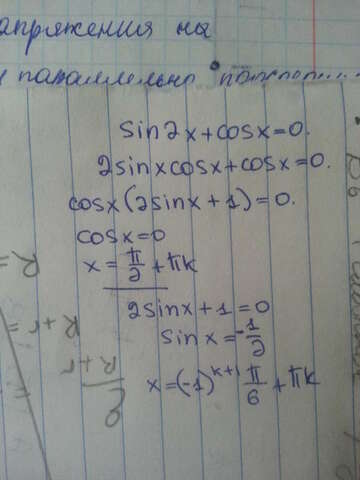 апряжения на
параллельно
sin2x+cosx=0.
2sinxcosx+cosx=0.
cosx(2sinx+1)=0.
cosx=0
x=π/2+πk
2sinx+1=0
sinx=-1/2
x=(-1)^k+1 π/6+πk
R=
R+r=
R+r